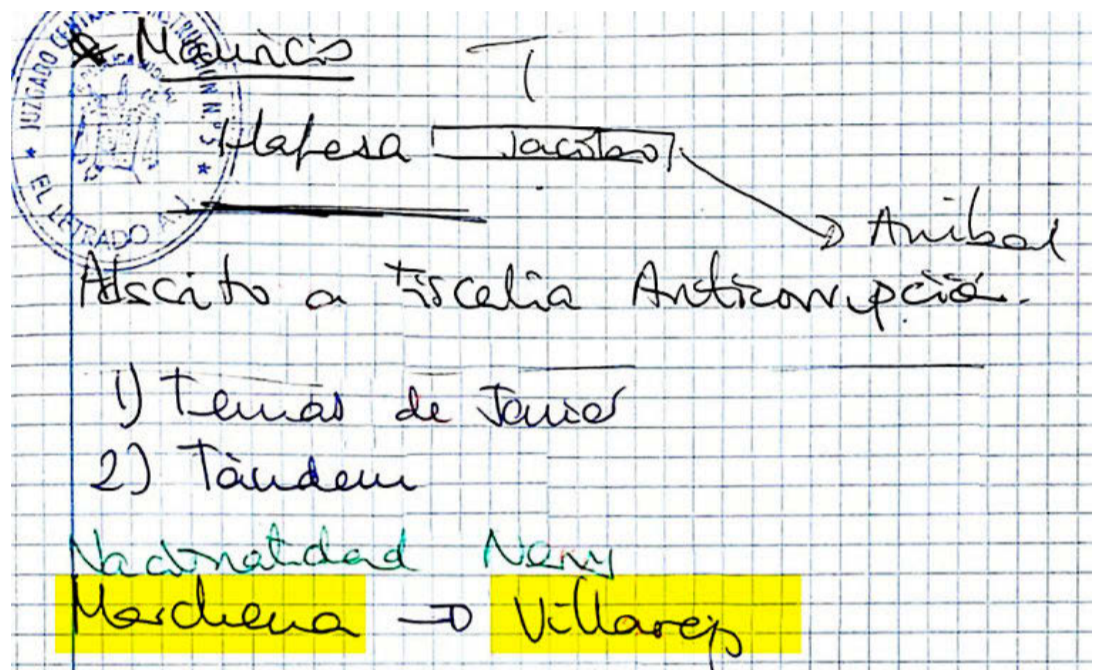 JUZGADO CENTRAL DE INSTRUCCIÓN N.º 5
EL LETRADO A.J.
Mauricio
Hafesa Jacobo
Anibal
Adscrito a Fiscalia Anticorrupció.
1) Temas de Javier
2) Tándem
Nacionalidad Neny
Marchena → Villarejo